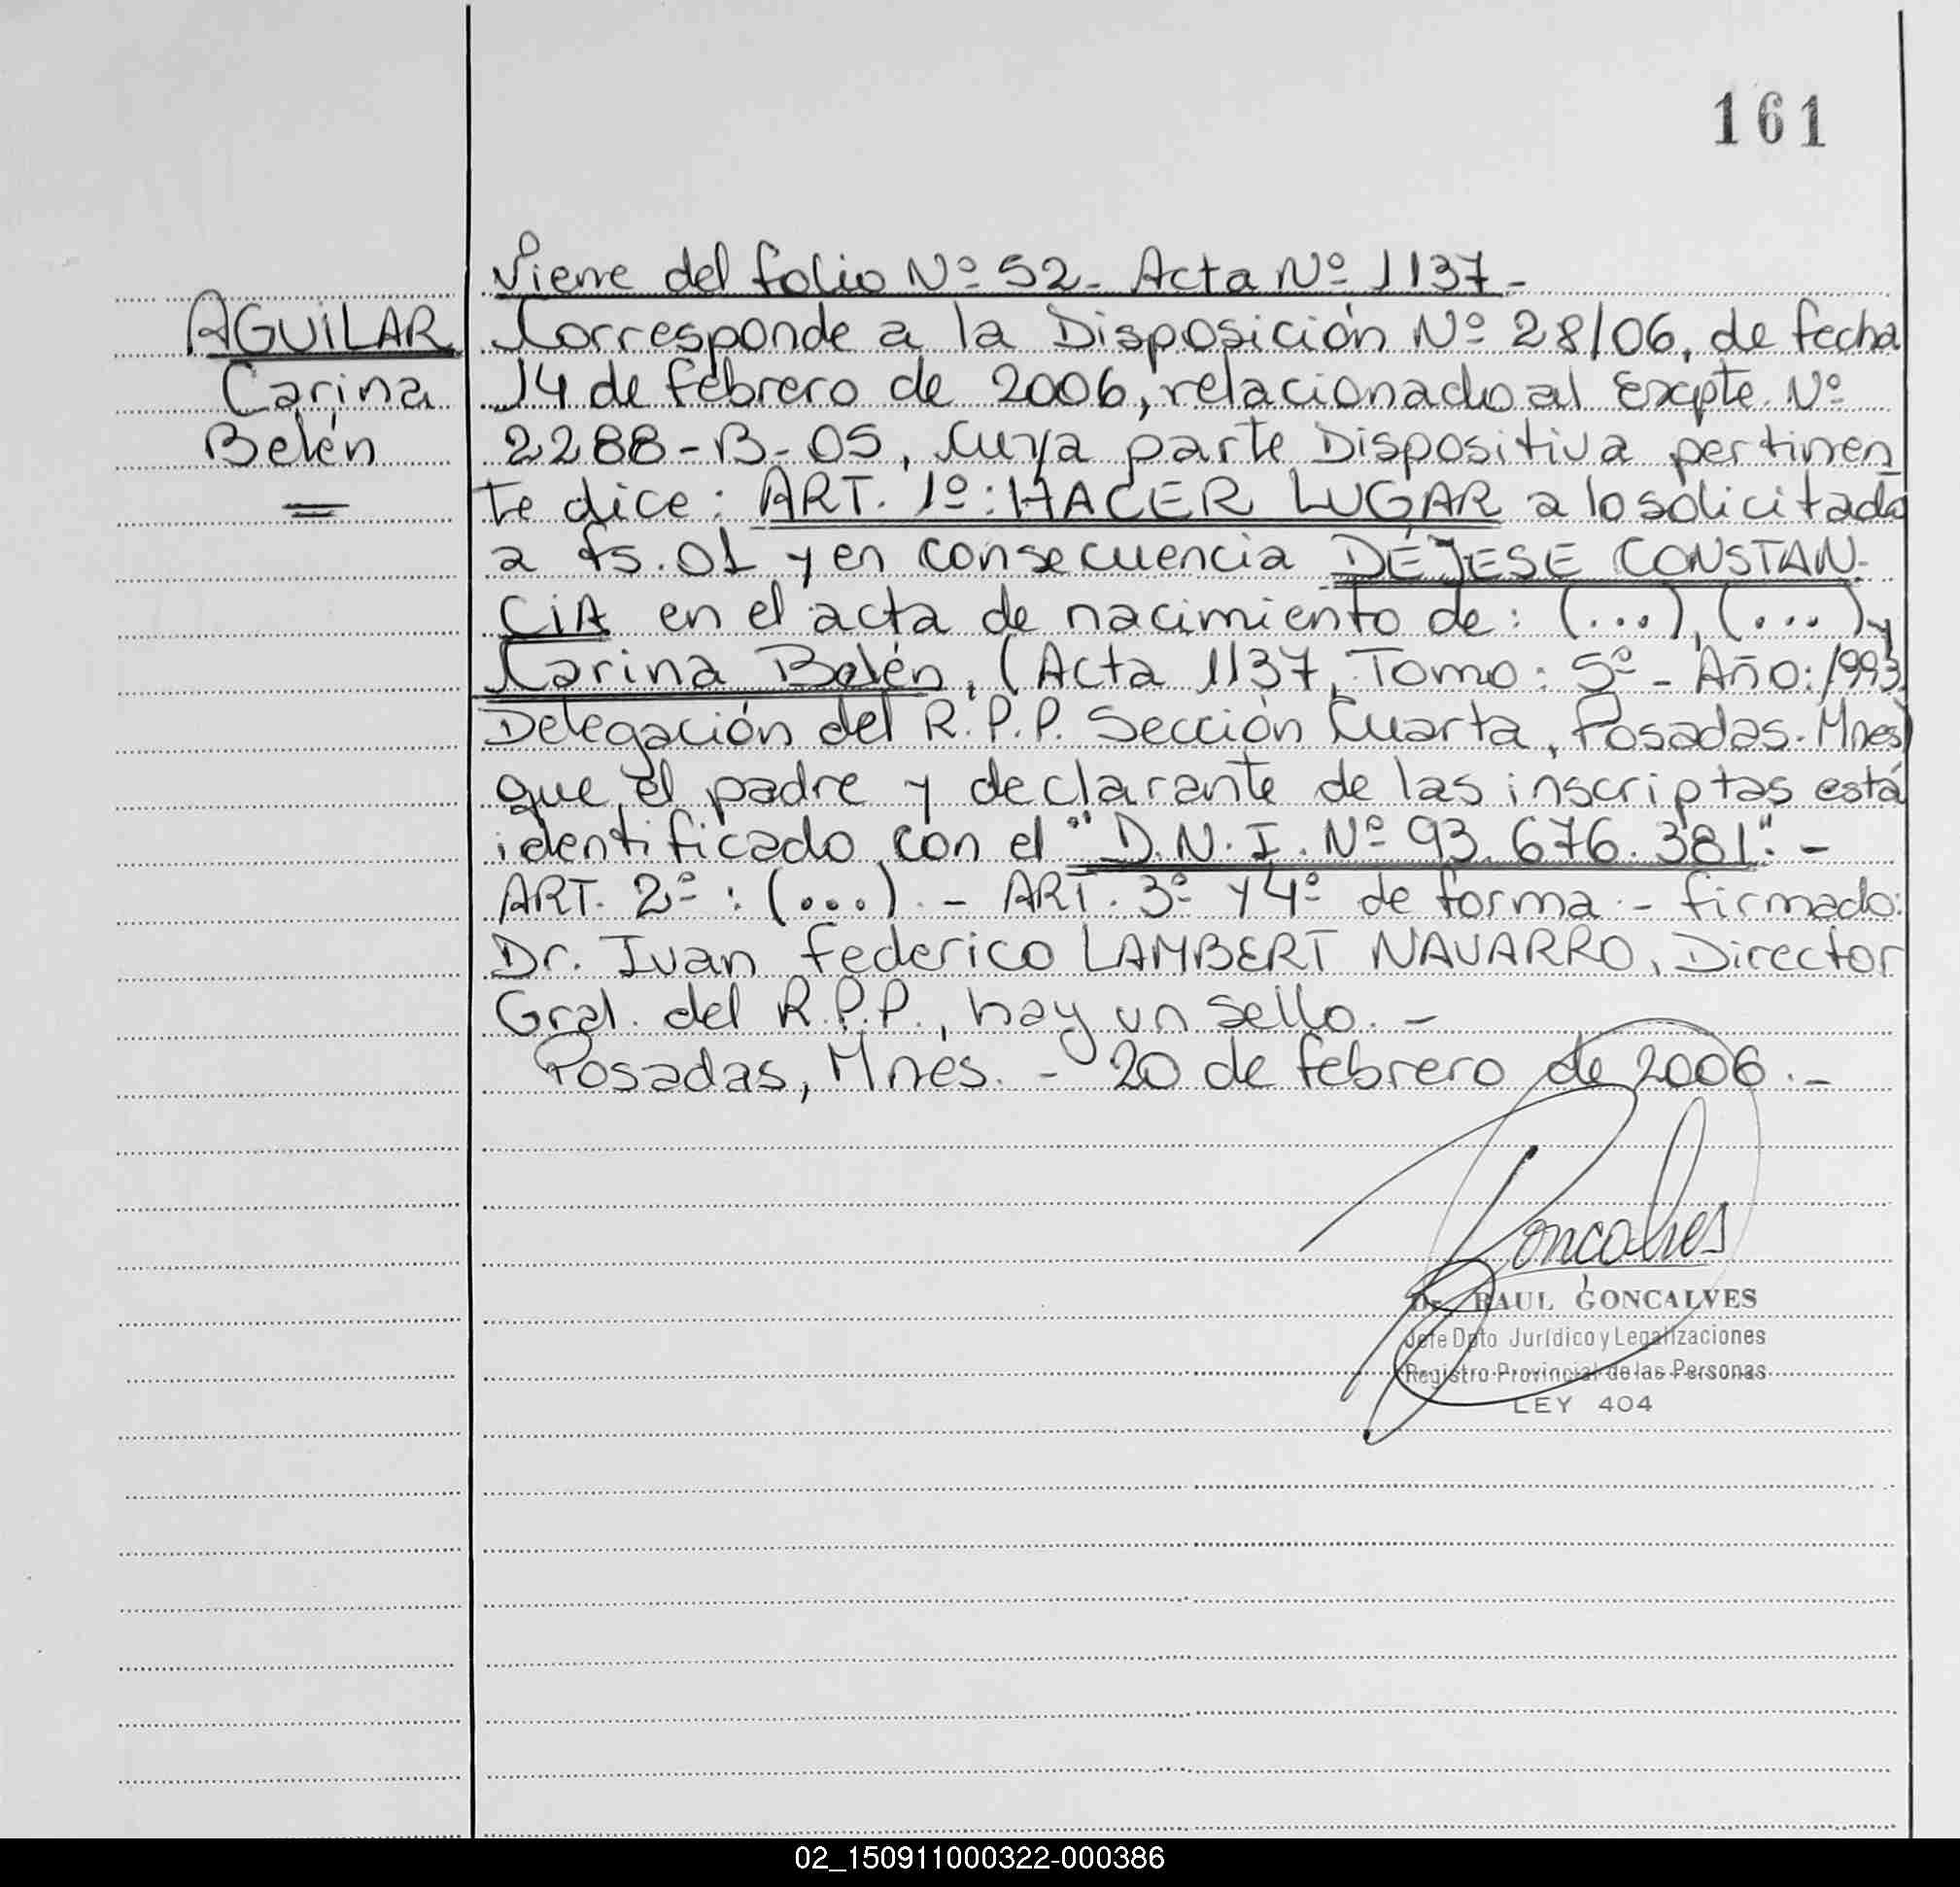 161
Viene del folio Nº 52- Acta Nº 1137-
AGUILAR
Carina
Belén
Corresponde a la Disposición Nº 28/06, de fecha
14 de febrero de 2006, relacionado al Excpte Nº
2288-B-05, Cuya parte Dispositiva pertinen
te dice: ART. 1º: HACER LUGAR a lo solicitado
a fs. 01 y en consecuencia DÉJESE CONSTAN-
CIA en el acta de nacimiento de: (...), (...) y
Carina Belén, (Acta 1137, Tomo: 5º - Año: 1993,
Delegación del R.P.P. Sección Cuarta, Posadas. Mnes)
que el padre y declarante de las inscriptas está
identificado con el "D.N.I. Nº 93.676.381". -
ART. 2º : (...). - ART. 3º y 4º de forma. - firmado:
Dr. Juan Federico LAMBERT NAVARRO, Director
Gral. del R.P.P., hay un sello. -
Posadas, Mnes. - 20 de febrero de 2006. -
Goncalves
Dr. RAUL GONCALVES
Jefe Dpto Jurídico y Legalizaciones
Registro Provincial de las Personas
LEY 404
02_150911000322-000386